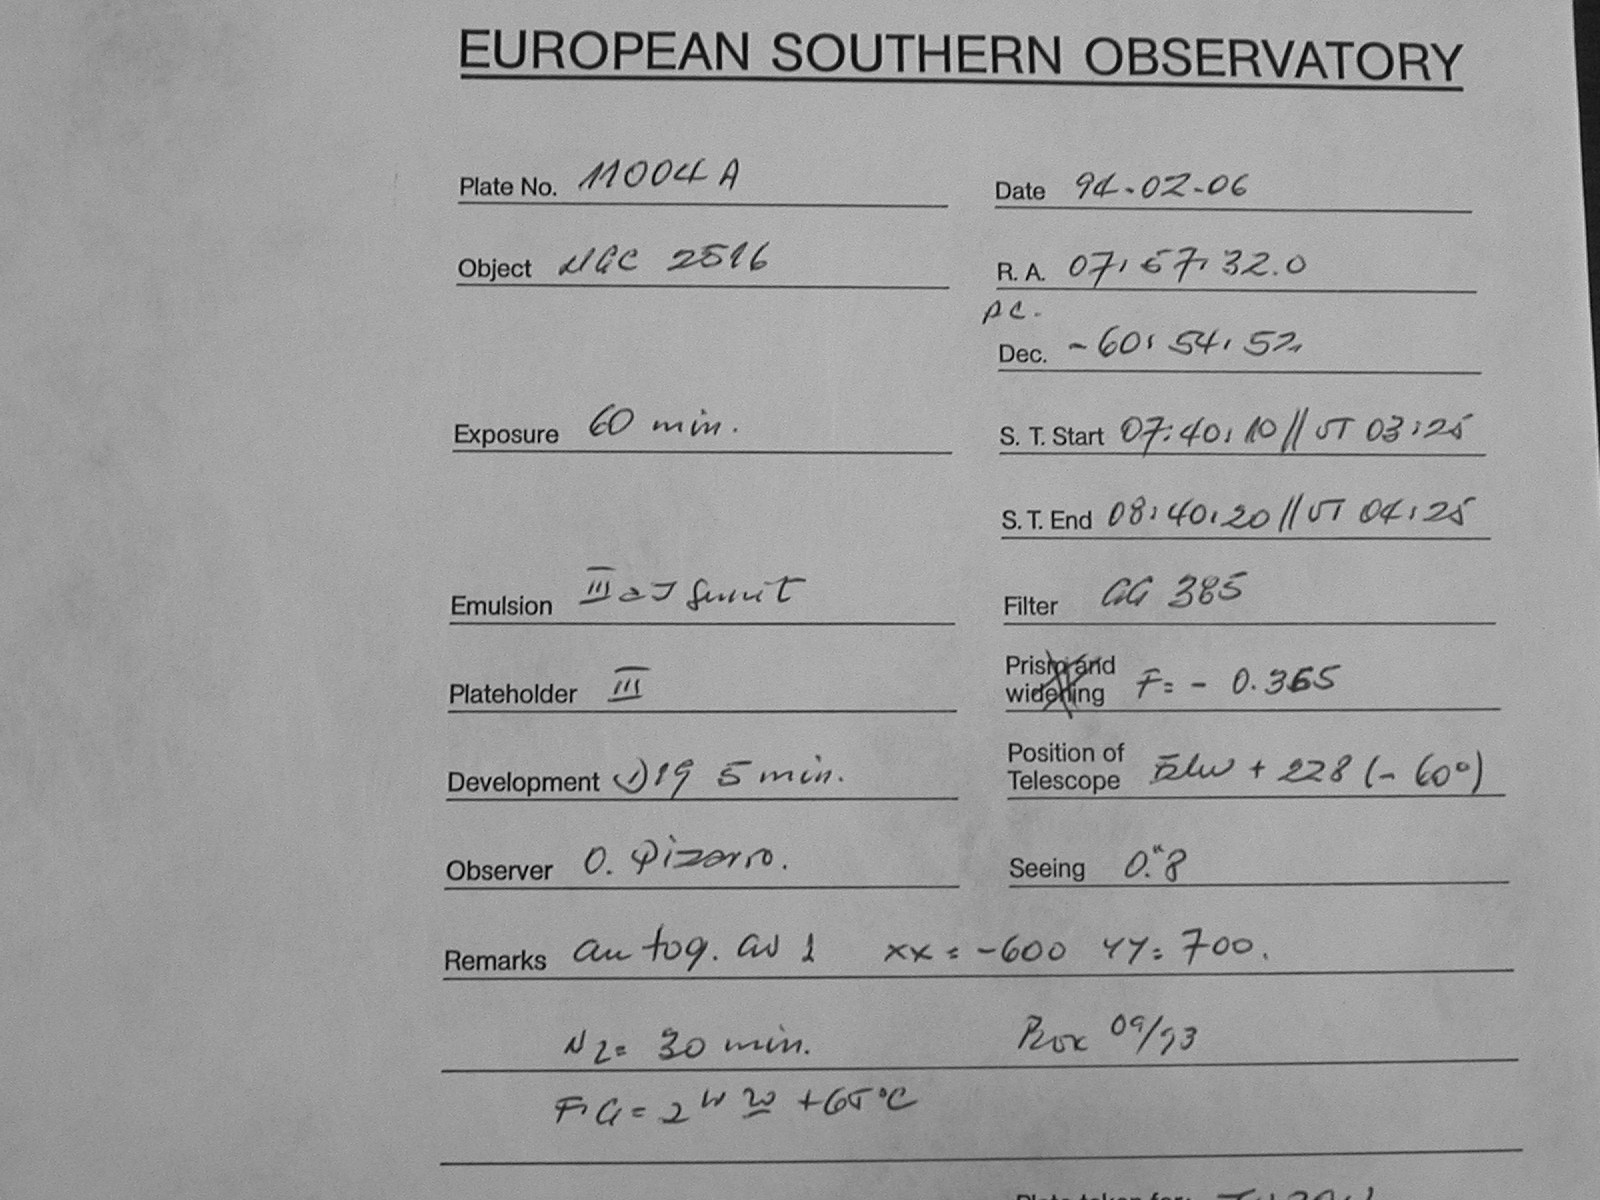 EUROPEAN SOUTHERN OBSERVATORY
Plate No. 11004 A
Date 94-02-06
Object NGC 2516
R. A. 07: 57: 32.0
Dec. -60: 54: 52
Exposure 60 min.
S. T. Start 07:40:10 // UT 03:25
S. T. End 08:40:20 // UT 04:25
Emulsion III a J
Filter GG 385
Plateholder III
Prism and widening F= - 0.365
Development D19 5 min.
Position of Telescope + 228 (- 60°)
Observer O. Pizarro.
Seeing 0."8
Remarks autog. xx = -600 YY= 700.
N2= 30 min.
Box 09/93
F.G = 2 H 20 +65°C
Plate taken for: